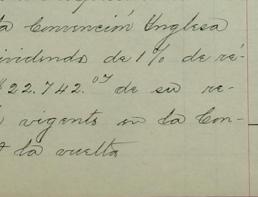 la Convención Inglesa
dividendo de 1% de ré-
$22.742.07 de su re-
vigente en la Con-
a la vuelta